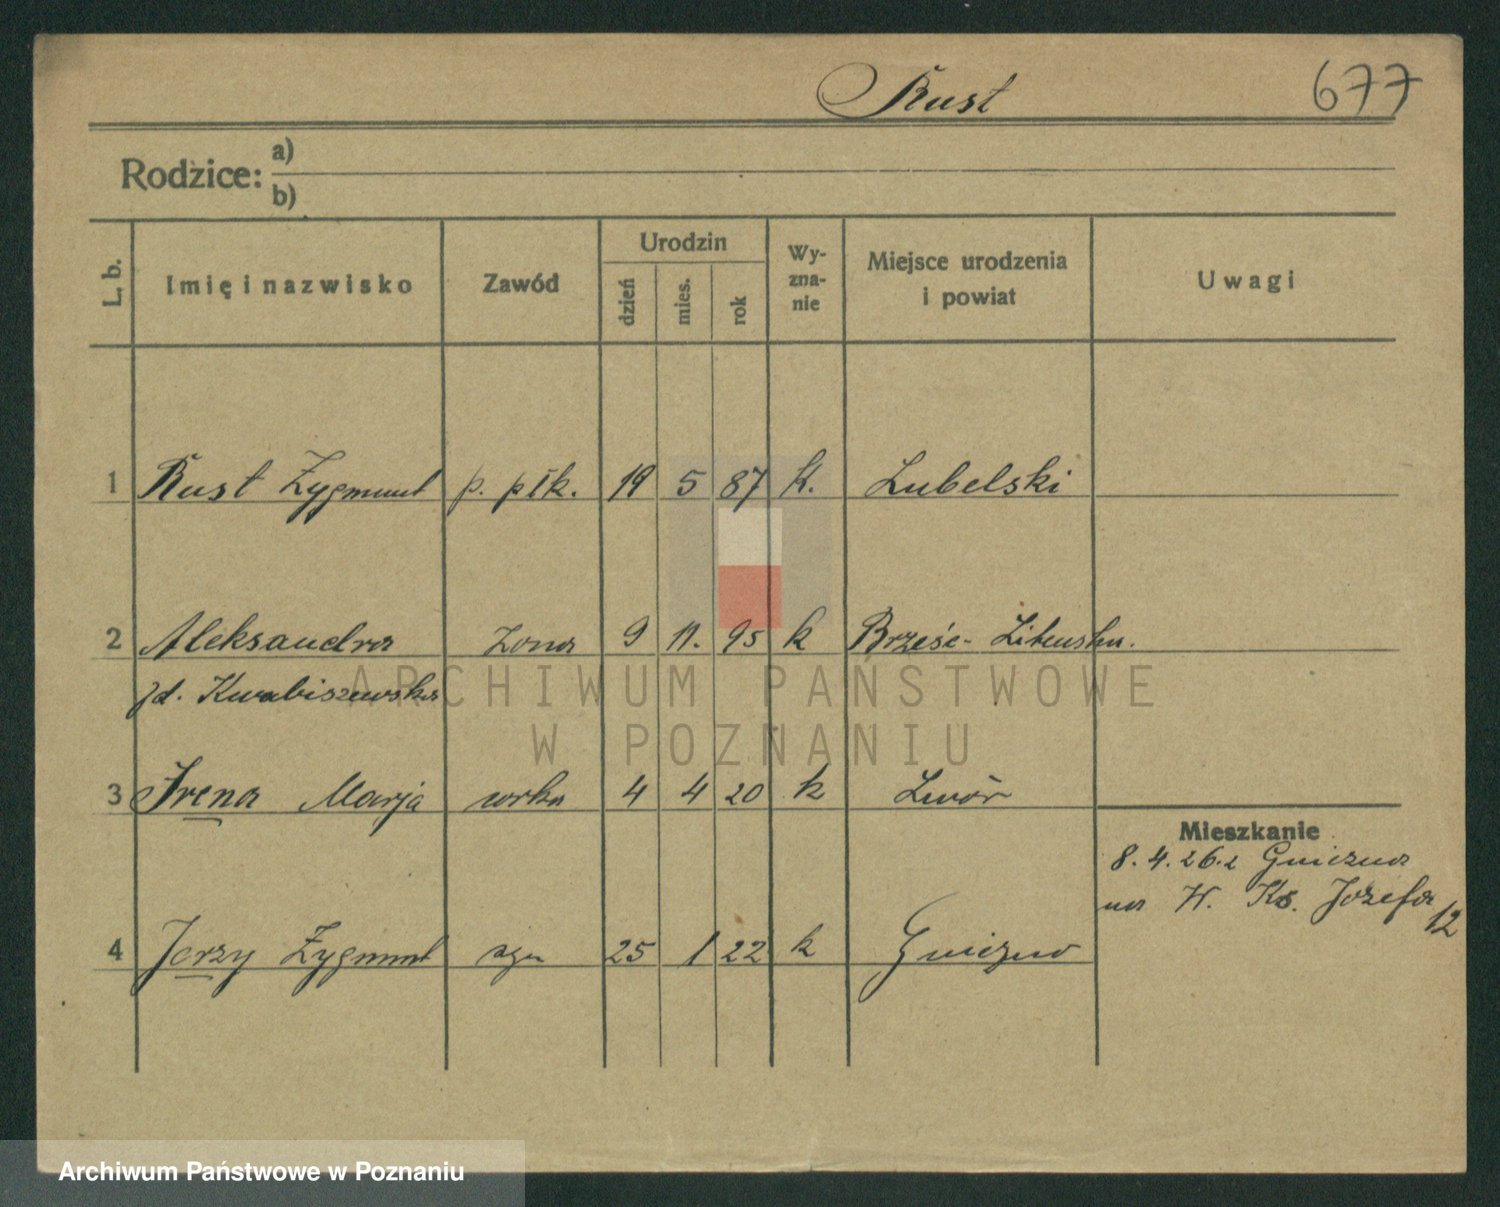 Rust 677
Rodzice: a)
b)
L. b. Imię i nazwisko Zawód Urodzin dzień mies. rok Wy-zna-nie Miejsce urodzenia i powiat Uwagi
1 Rust Zygmunt p. płk. 19 5 87 k. Lubelski
2 Aleksandra żona 9 11. 95 k Brześć-Litewska.
ARCHIWUM PAŃSTWOWE
W POZNANIU
3 Irena Marja córka 4 4 20 k Lwów
Mieszkanie
8. 4. 26. z Gniezna
na H. Ks. Józefa 12
4 Jerzy Zygmunt syn 25 1 22 k Gniezno
Archiwum Państwowe w Poznaniu